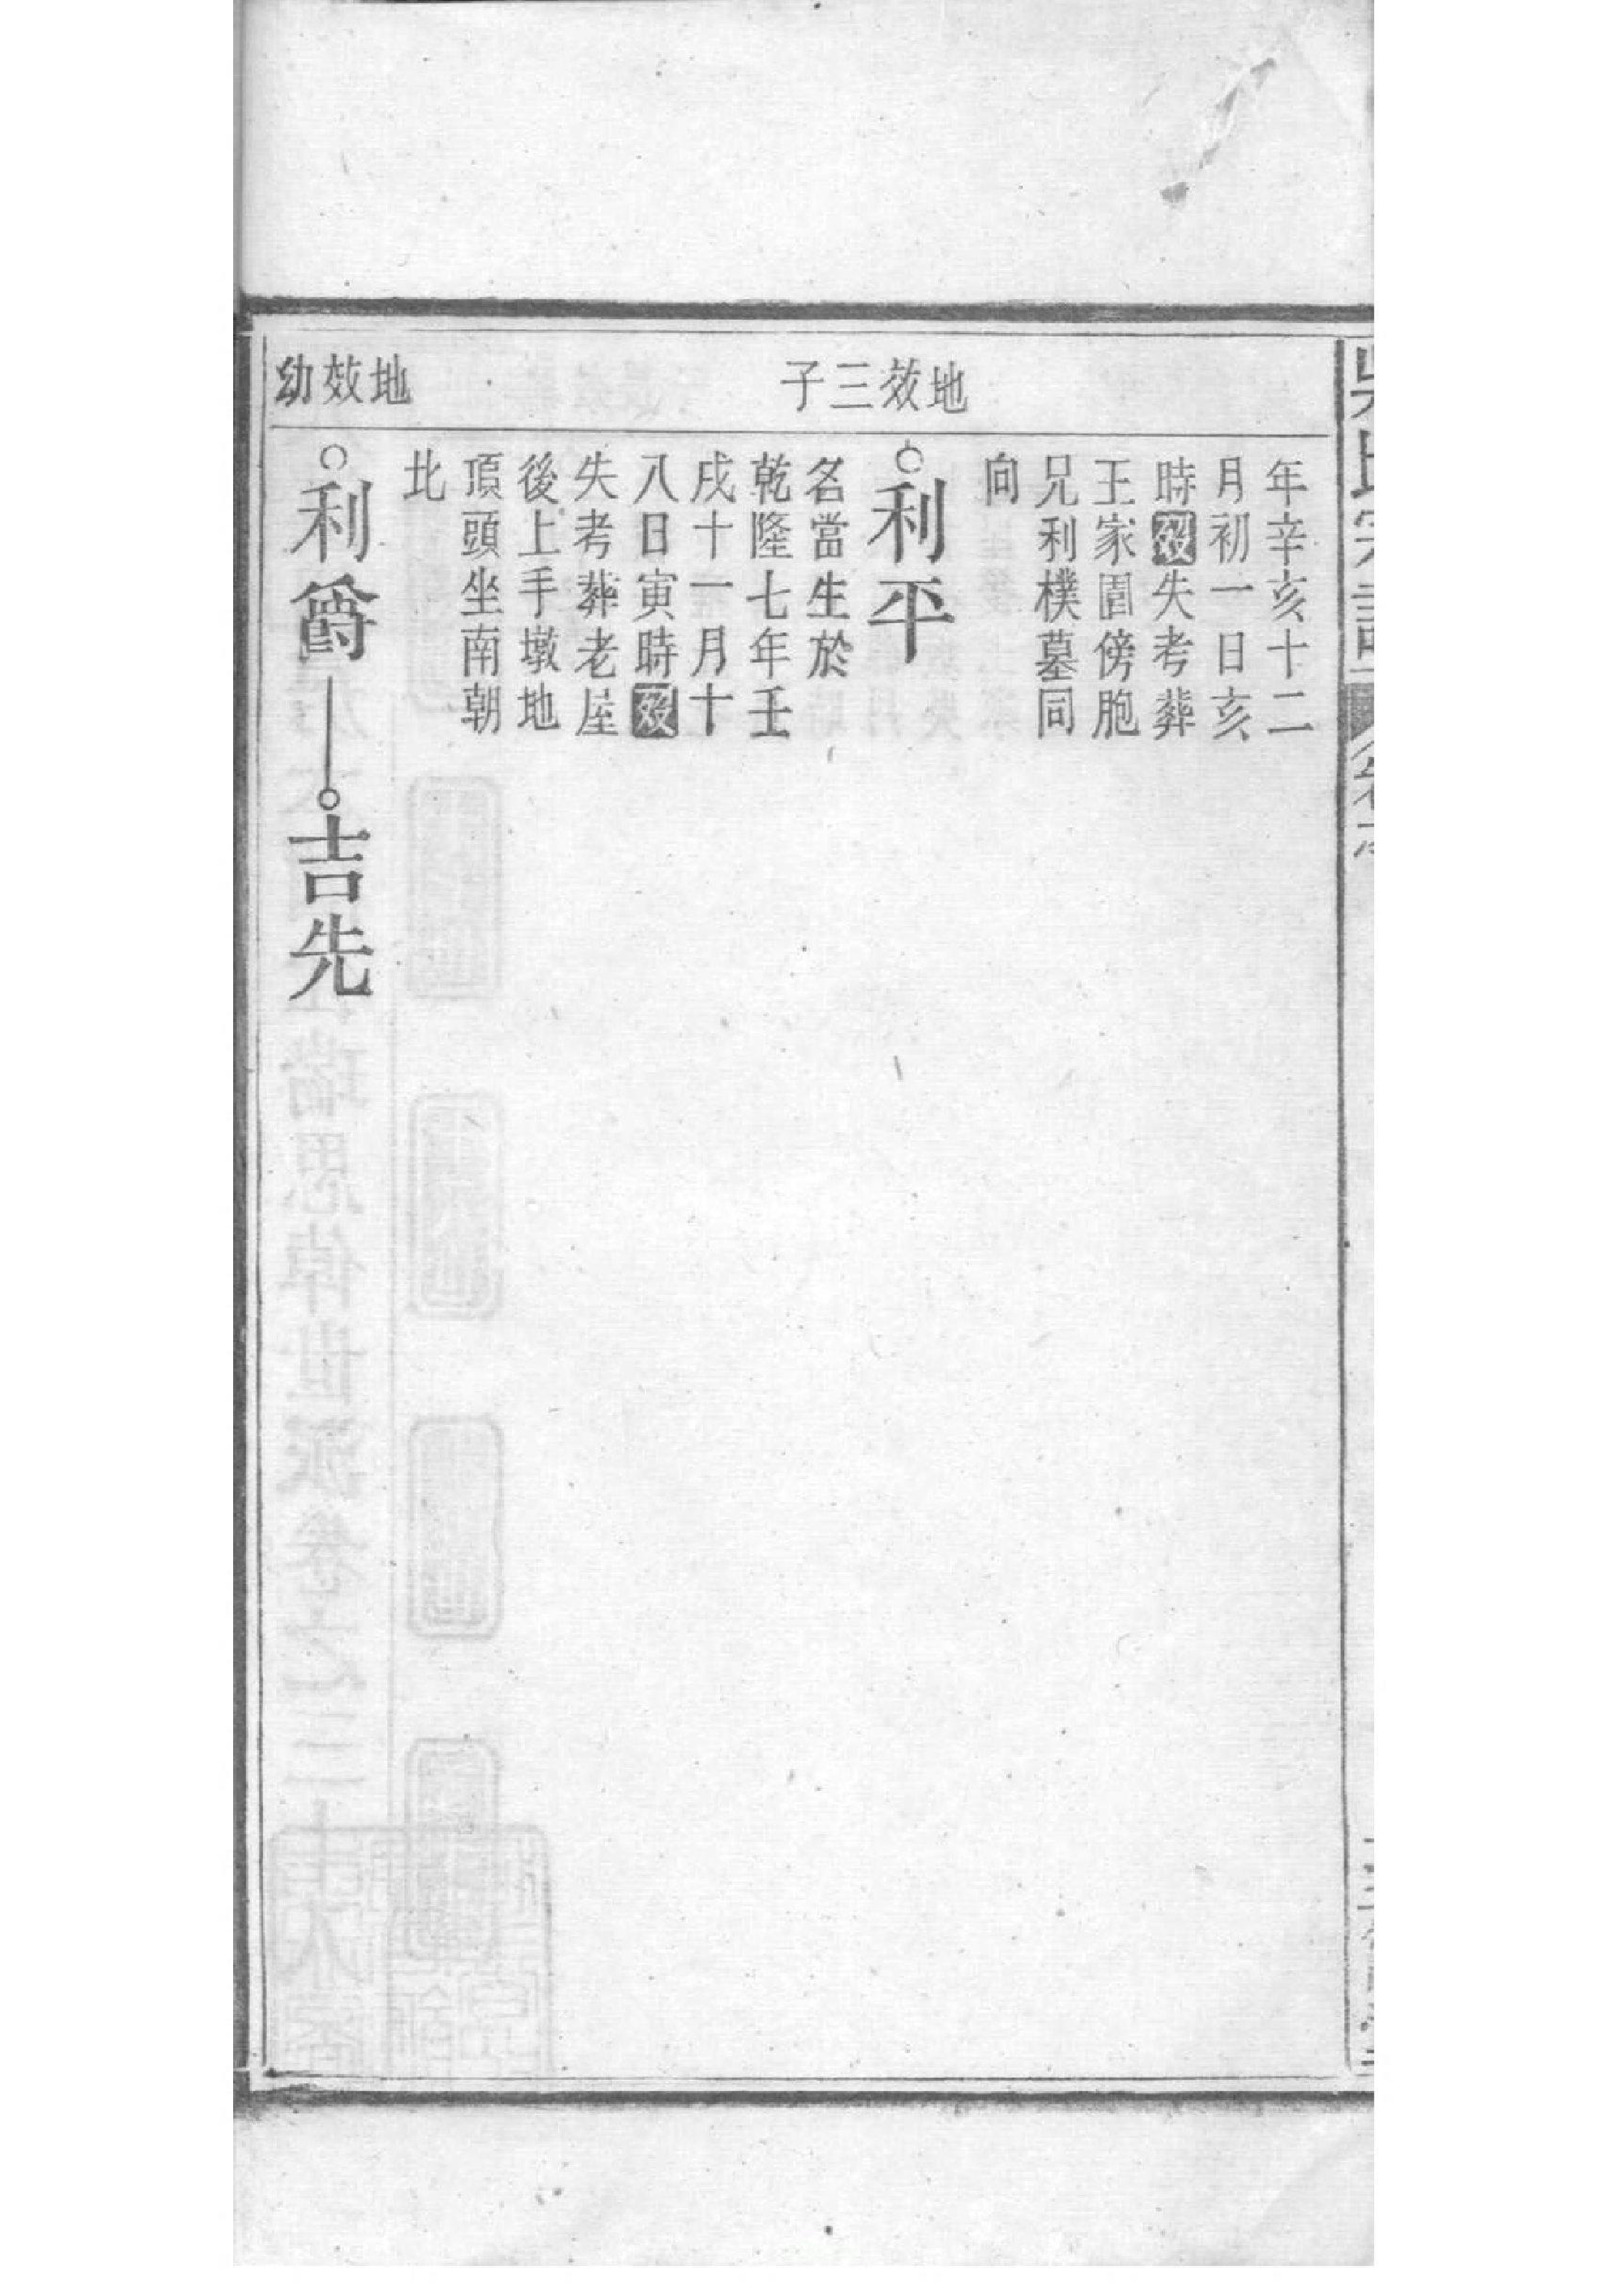 吳氏宗譜
年辛亥十二
月初一日亥
時殁失考葬
王家園傍胞
兄利樸墓同
向
地效三子
利平
名當生於
乾隆七年壬
戌十一月十
八日寅時殁
失考葬老屋
後上手墩地
頂頭坐南朝
北
地效幼
利爵
吉先